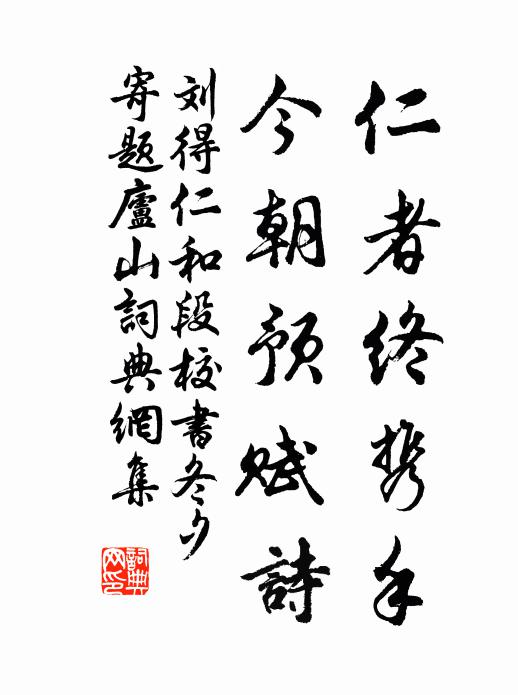 仁者终携手
今朝预赋詩
刘得仁和段校書冬夕
寄题廬山詞典網集
詞典網印